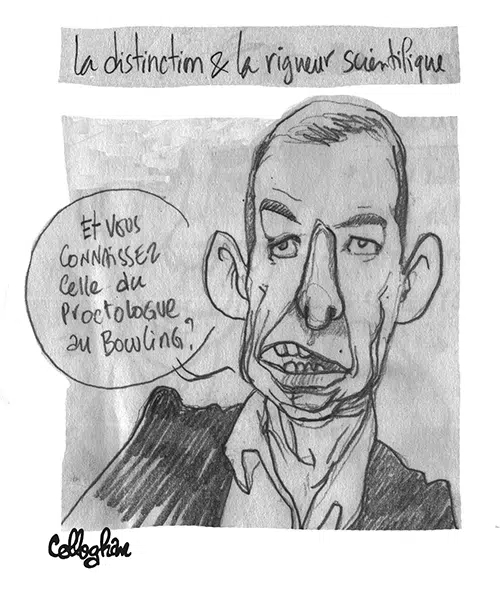 la distinction & la rigueur scientifique
Et vous
connaissez
celle du
proctologue
au Bowling?
Celloghan